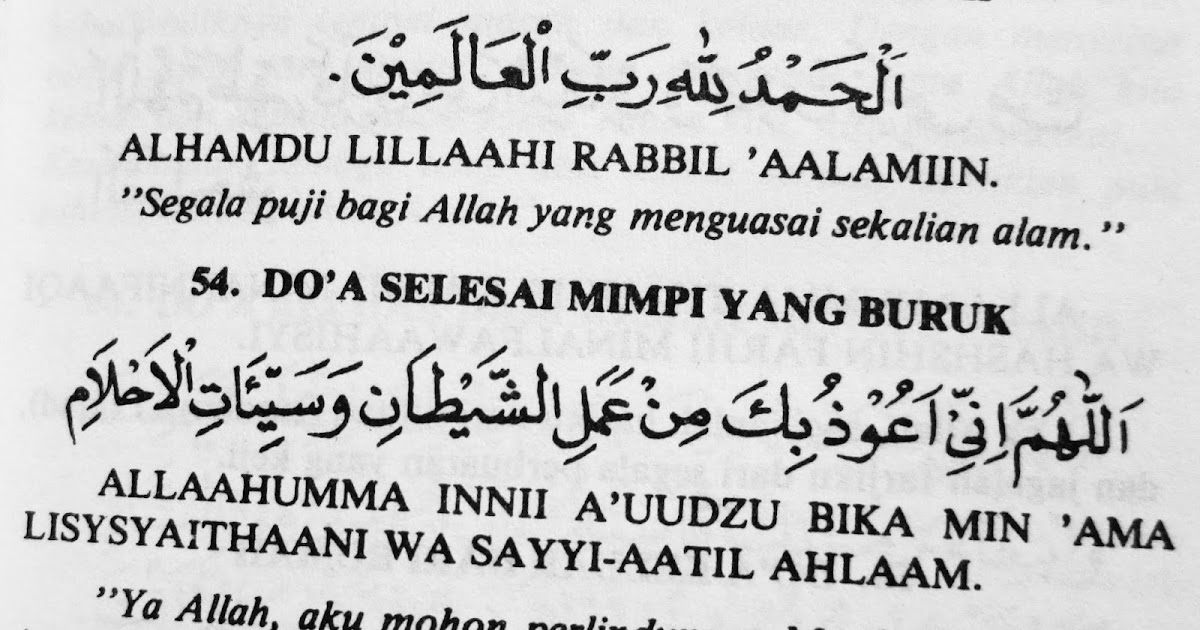 اَلْحَمْدُ لِلّٰهِ رَبِّ الْعَالَمِيْنَ.
ALHAMDU LILLAAHI RABBIL 'AALAMIIN.
"Segala puji bagi Allah yang menguasai sekalian alam."
54. DO'A SELESAI MIMPI YANG BURUK
اَللّٰهُمَّ اِنِّيْ اَعُوْذُ بِكَ مِنْ عَمَلِ الشَّيْطَانِ وَسَيِّئَاتِ الْاَحْلَامِ
ALLAAHUMMA INNII A'UUDZU BIKA MIN 'AMA
LISYSYAITHAANI WA SAYYI-AATIL AHLAAM.
"Ya Allah, aku mohon